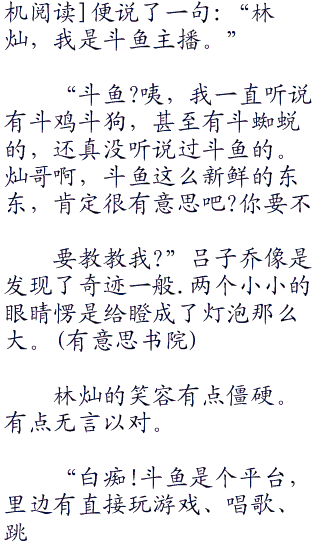 机阅读]便说了一句：“林
灿，我是斗鱼主播。”
“斗鱼?咦，我一直听说
有斗鸡斗狗，甚至有斗蜘蜕
的，还真没听说过斗鱼的。
灿哥啊，斗鱼这么新鲜的东
东，肯定很有意思吧?你要不
要教教我?”吕子乔像是
发现了奇迹一般.两个小小的
眼睛愣是给瞪成了灯泡那么
大。(有意思书院)
林灿的笑容有点僵硬。
有点无言以对。
“白痴!斗鱼是个平台，
里边有直接玩游戏、唱歌、
跳